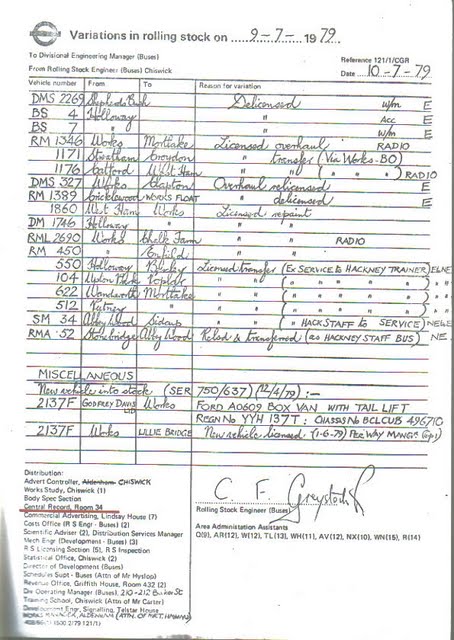 Variations in rolling stock on 9-7-1979
To Divisional Engineering Manager (Buses)
Reference 121/1/CGR
From Rolling Stock Engineer (Buses) Chiswick
Date 10-7-79
Vehicle number From To Reason for variation
DMS 2269 Shepherds Bush Delicensed u/w E
BS 4 Holloway " Acc E
BS 7 " " u/w E
RM 1346 Works Mortlake Licensed overhaul RADIO
1171 Streatham Croydon " transfer (Via Works-BO)
1176 Catford West Ham " " ( " " " ) RADIO
DMS 327 Works Clapton Overhaul relicensed E
RM 1389 Cricklewood WORKS FLOAT " delicensed E
1860 West Ham Works Licensed repaint
DM 1746 Holloway " " " E
RML 2690 Works Chalk Farm " " RADIO
RM 450 " Enfield " "
550 Holloway Licensed transfer (EX SERVICE TO HACKNEY TRAINER)
104 Upton Park Poplar " " ( " " " " )
622 Wandsworth Mortlake " " ( " " " " )
512 Putney " " " ( " " " " )
SM 34 Abbey Wood Sidcup " " ( " HACK STAFF to SERVICE)
RMA 52 Stonebridge Abbey Wood Relsd & transferred (as HACKNEY STAFF BUS)
MISCELLANEOUS
New vehicle into stock (SER 750/637) (12/4/79) :-
2137F GODFREY DAVIS LTD Works FORD A0609 BOX VAN WITH TAIL LIFT
REGN NO YYH 137T : CHASSIS NO BCLCUB 496710
2137F Works LILLIE BRIDGE New vehicle licensed (1-6-79) PER WAY MANGR
Distribution:
Advert Controller, Aldenham CHISWICK
Works Study, Chiswick (1)
Body Spec Section
Central Record, Room 34
Commercial Advertising, Lindsay House (7)
Costs Office (R S Engr - Buses) (2)
Scientific Adviser (2), Distribution Services Manager
Mech Engr (Development - Buses) (3)
R S Licensing Section (5), R S Inspection
Statistical Office, Chiswick (2)
Director of Development (Buses)
Schedules Supt - Buses (Attn of Mr Hyslop)
Revenue Office, Griffith House, Room 432 (2)
Div Operating Manager (Buses), 210-212 Baker St
Training School, Chiswick (Attn of Mr Carter)
Development Engr, Signalling, Telstar House
WORKS MANAGER, ALDENHAM (ATTN. OF
1500 2/79 121/1
C. F. Greystock
Rolling Stock Engineer (Buses)
Area Administation Assistants
O(9), AR(12), W(12), TL(13), WH(11), AV(12), NX(10), WN(15), R(14)